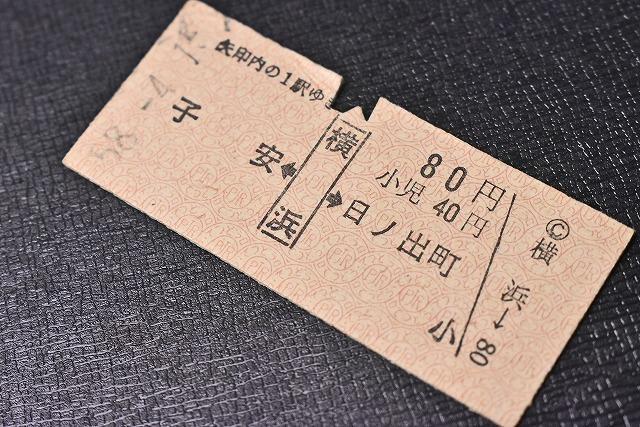 58.-4.1
矢印内の1駅ゆき
子安←横浜→日ノ出町
80円
小児40円
小
Ⓒ横浜→80